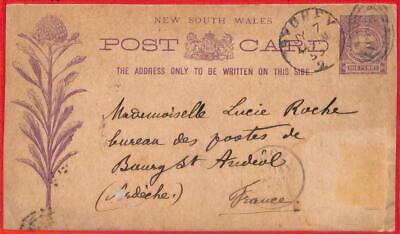 NEW SOUTH WALES
POST CARD
THE ADDRESS ONLY TO BE WRITTEN ON THIS SIDE.
SYDNEY
7
ONE PENNY
Mademoiselle Lucie Roche
bureau des postes de
Bourg St Andéol
(Ardèche)
France